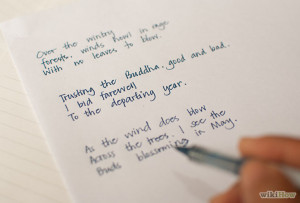 Over the wintry
forests, winds howl in rage
with no leaves to blow.
Trusting the Buddha, good and bad,
I bid farewell
To the departing year.
As the wind does blow
Across the trees, I see the
Buds blossoming in May.
wikiHow